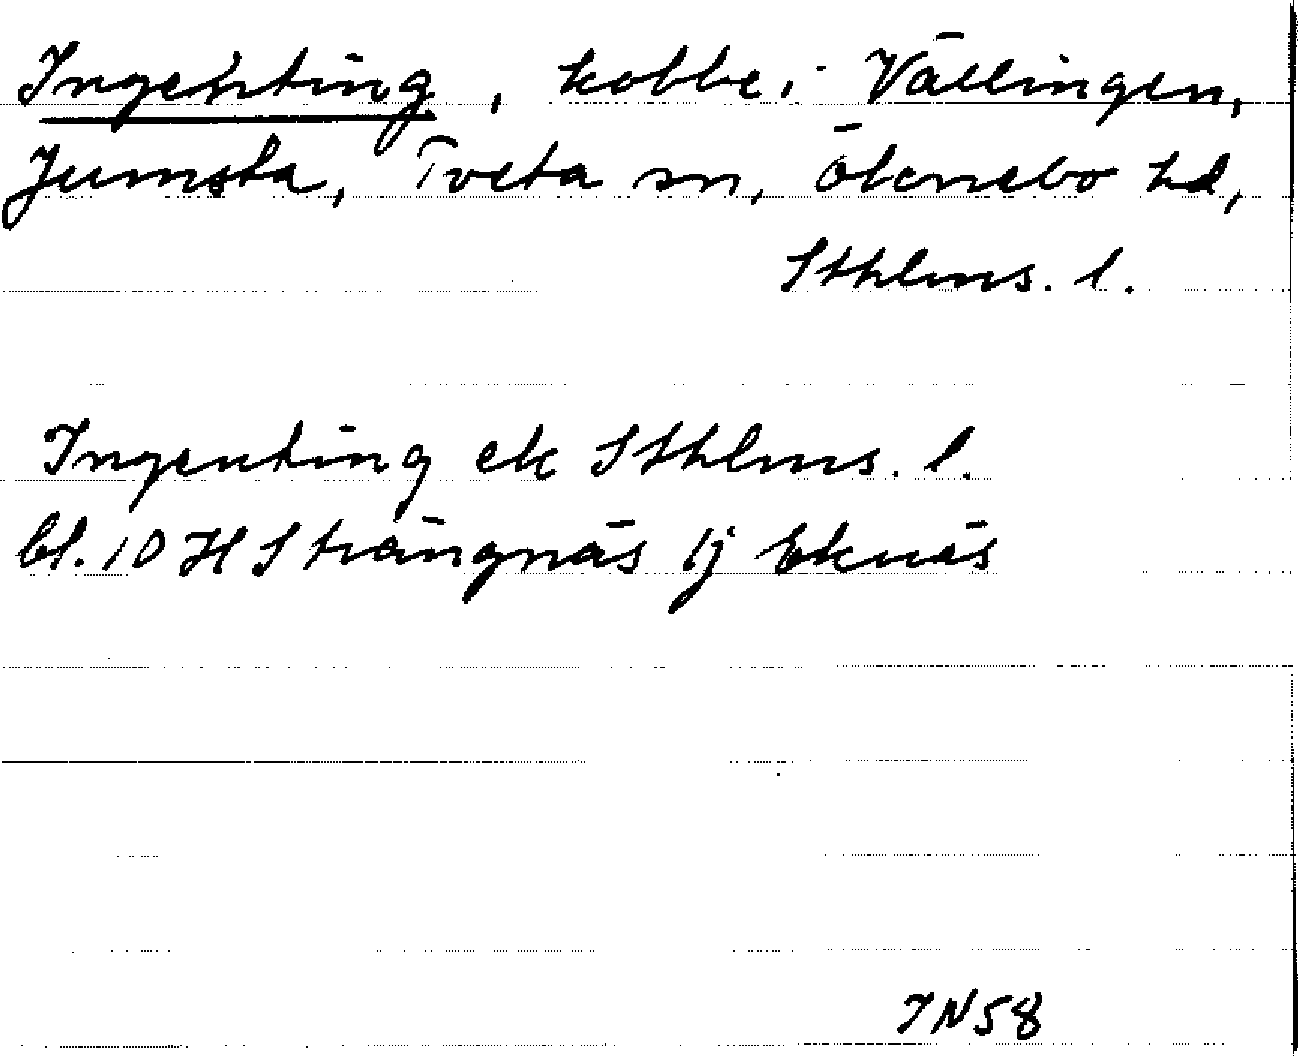 Ingenting, kobbe i Vällingen,
Jumsta, Tveta sn, Öknebo hd,
Sthlms. l.
Ingenting ek Sthlms. l.
bl. 10 H Strängnäs 1j Eknäs
IN58